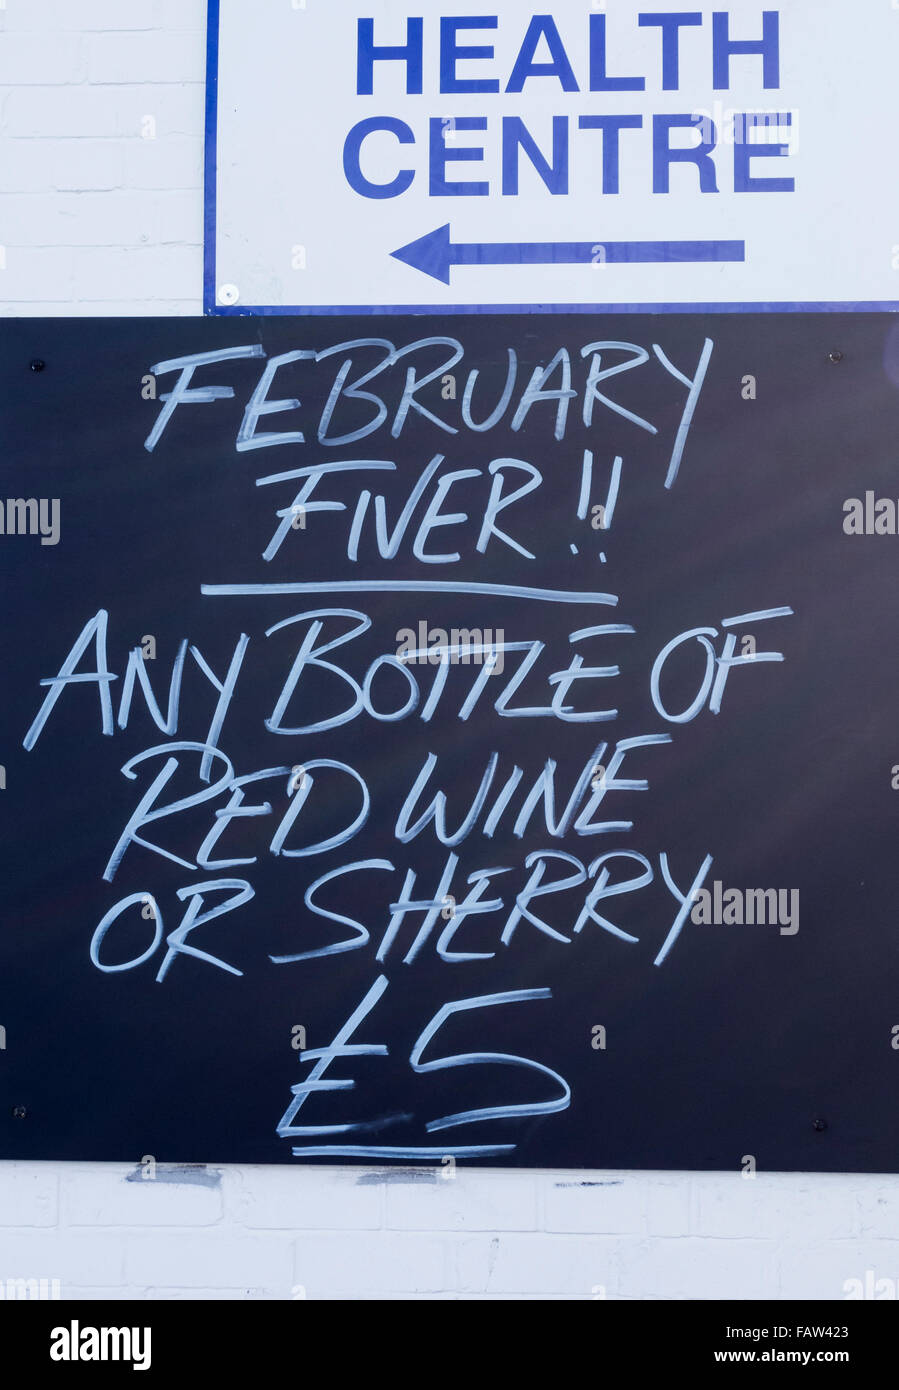 HEALTH
CENTRE
FEBRUARY
FIVER!!
ANY BOTTLE OF
RED WINE
OR SHERRY
£5
alamy stock photo
FAW423
www.alamy.com